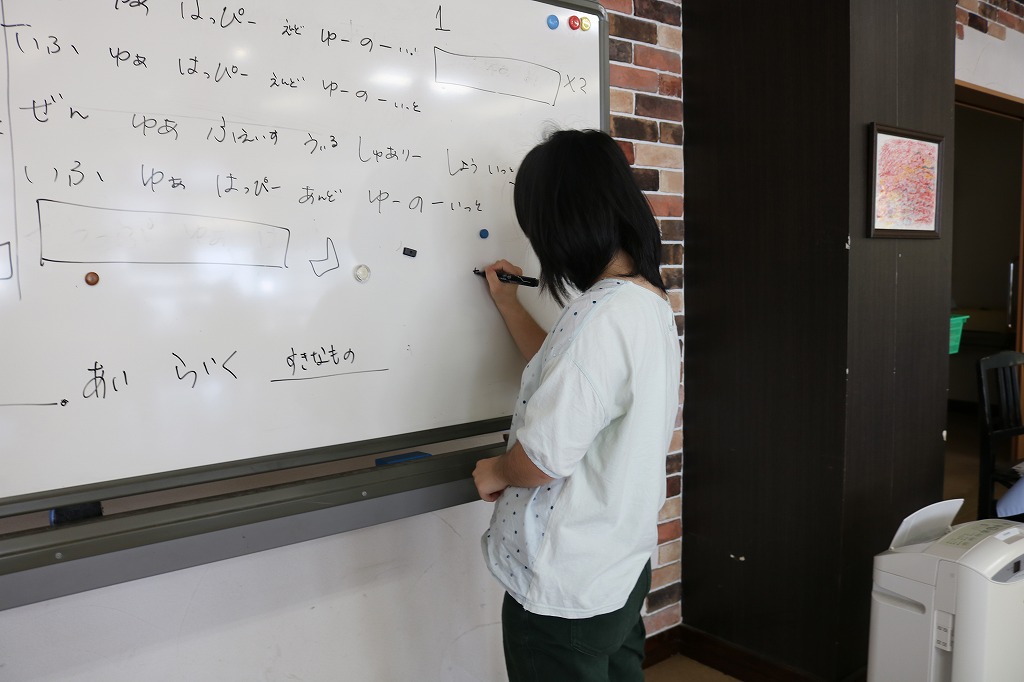 ゆぁ はっぴー えんど ゆーのーいっ 1
いふ ゆぁ はっぴー えんど ゆーのーいっと ×2
ぜん ゆあ ふぇいす うぃる しゅありー しょう いっと
いふ ゆぁ はっぴー あんど ゆーのーいっと
あい らいく すきなもの